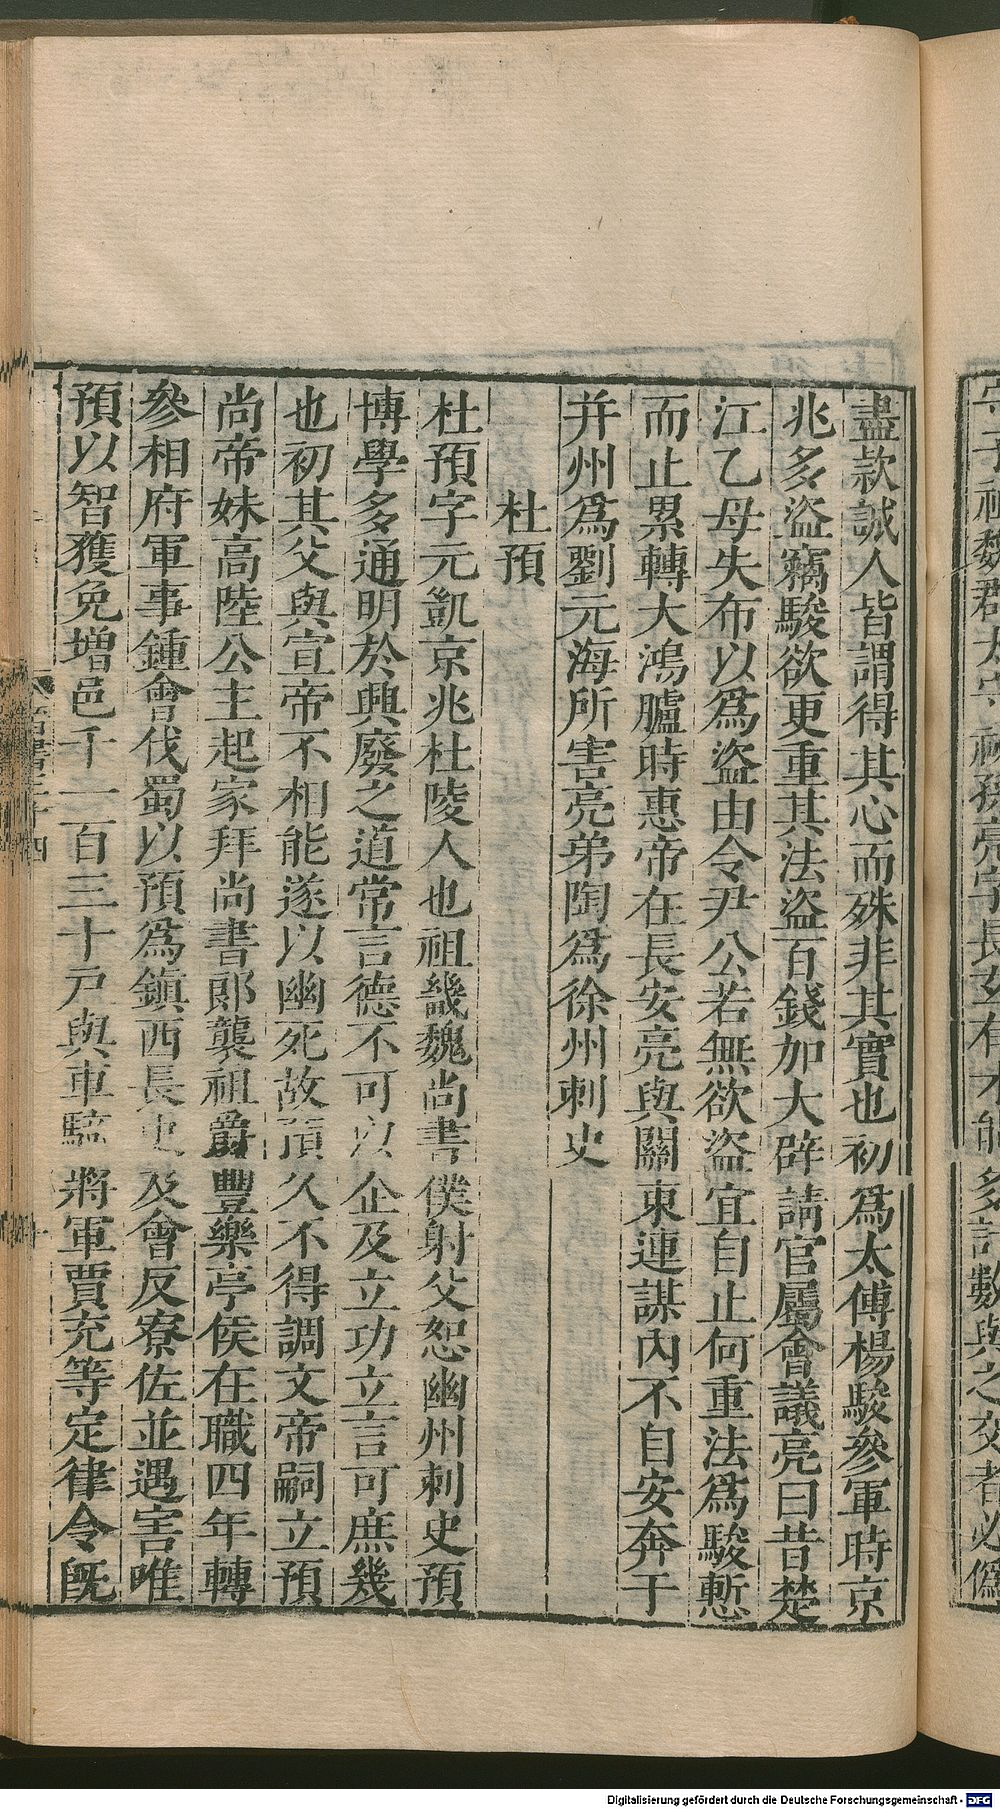 守子祜魏郡太守祜孫亮字長玄有才能多計數與之交者必僞
盡款誠人皆謂得其心而殊非其實也初爲太傅楊駿參軍時京
兆多盜竊駿欲更重其法盜百錢加大辟請官屬會議亮曰昔楚
江乙母失布以爲盜由令尹公若無欲盜宜自止何重法爲駿慙
而止累轉大鴻臚時惠帝在長安亮與關東連謀內不自安奔于
并州爲劉元海所害亮弟陶爲徐州刺史
杜預
杜預字元凱京兆杜陵人也祖畿魏尚書僕射父恕幽州刺史預
博學多通明於興廢之道常言德不可以企及立功立言可庶幾
也初其父與宣帝不相能遂以幽死故預久不得調文帝嗣立預
尚帝妹高陸公主起家拜尚書郎襲祖爵豐樂亭侯在職四年轉
參相府軍事鍾會伐蜀以預爲鎭西長史及會反寮佐並遇害唯
預以智獲免增邑千一百三十戸與車騎將軍賈充等定律令旣
Digitalisierung gefördert durch die Deutsche Forschungsgemeinschaft - DFG